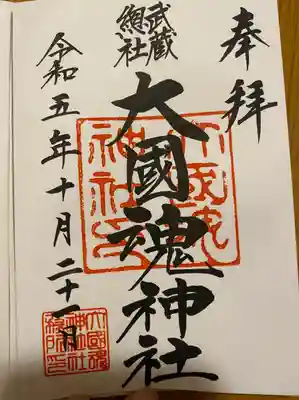 奉拝
武蔵
總社
大國魂神社
令和五年十月二十一日
大國魂
神社